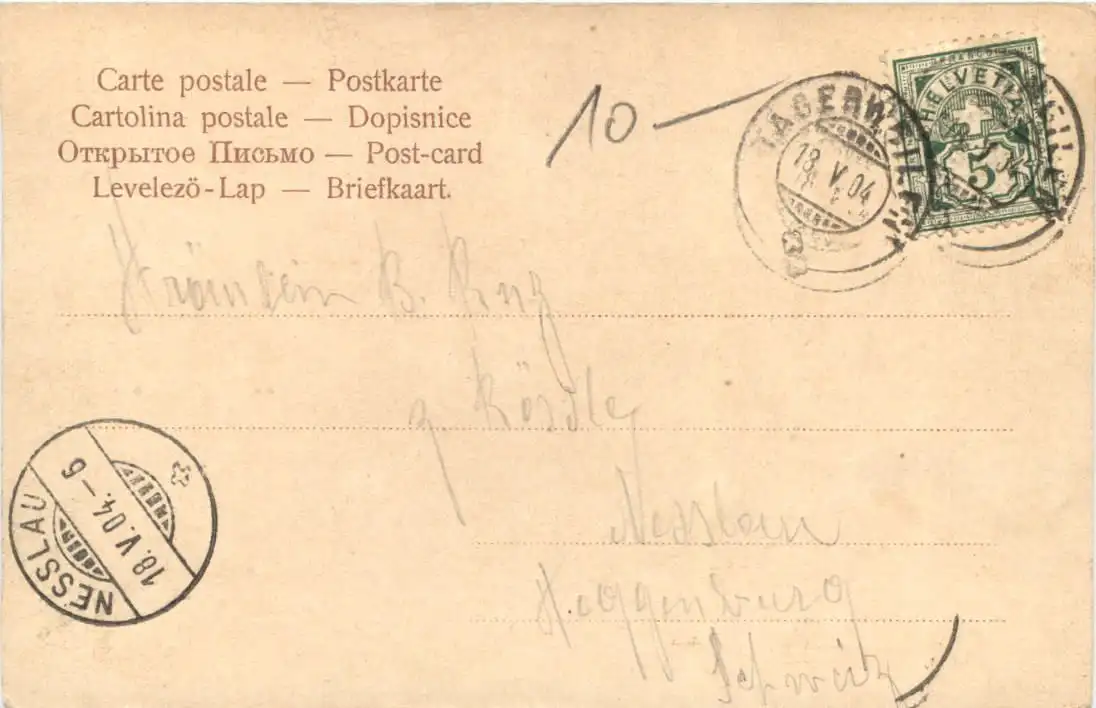 Carte postale — Postkarte
Cartolina postale — Dopisnice
Открытое Письмо — Post-card
Levelezö-Lap — Briefkaart.
10 —
TÄGERWEILEN
18.V.04
HELVETIA
5
Fräulein B.
z. Rössle
Nesslau
Toggenburg
Schweiz
NESSLAU
18.V.04.–6